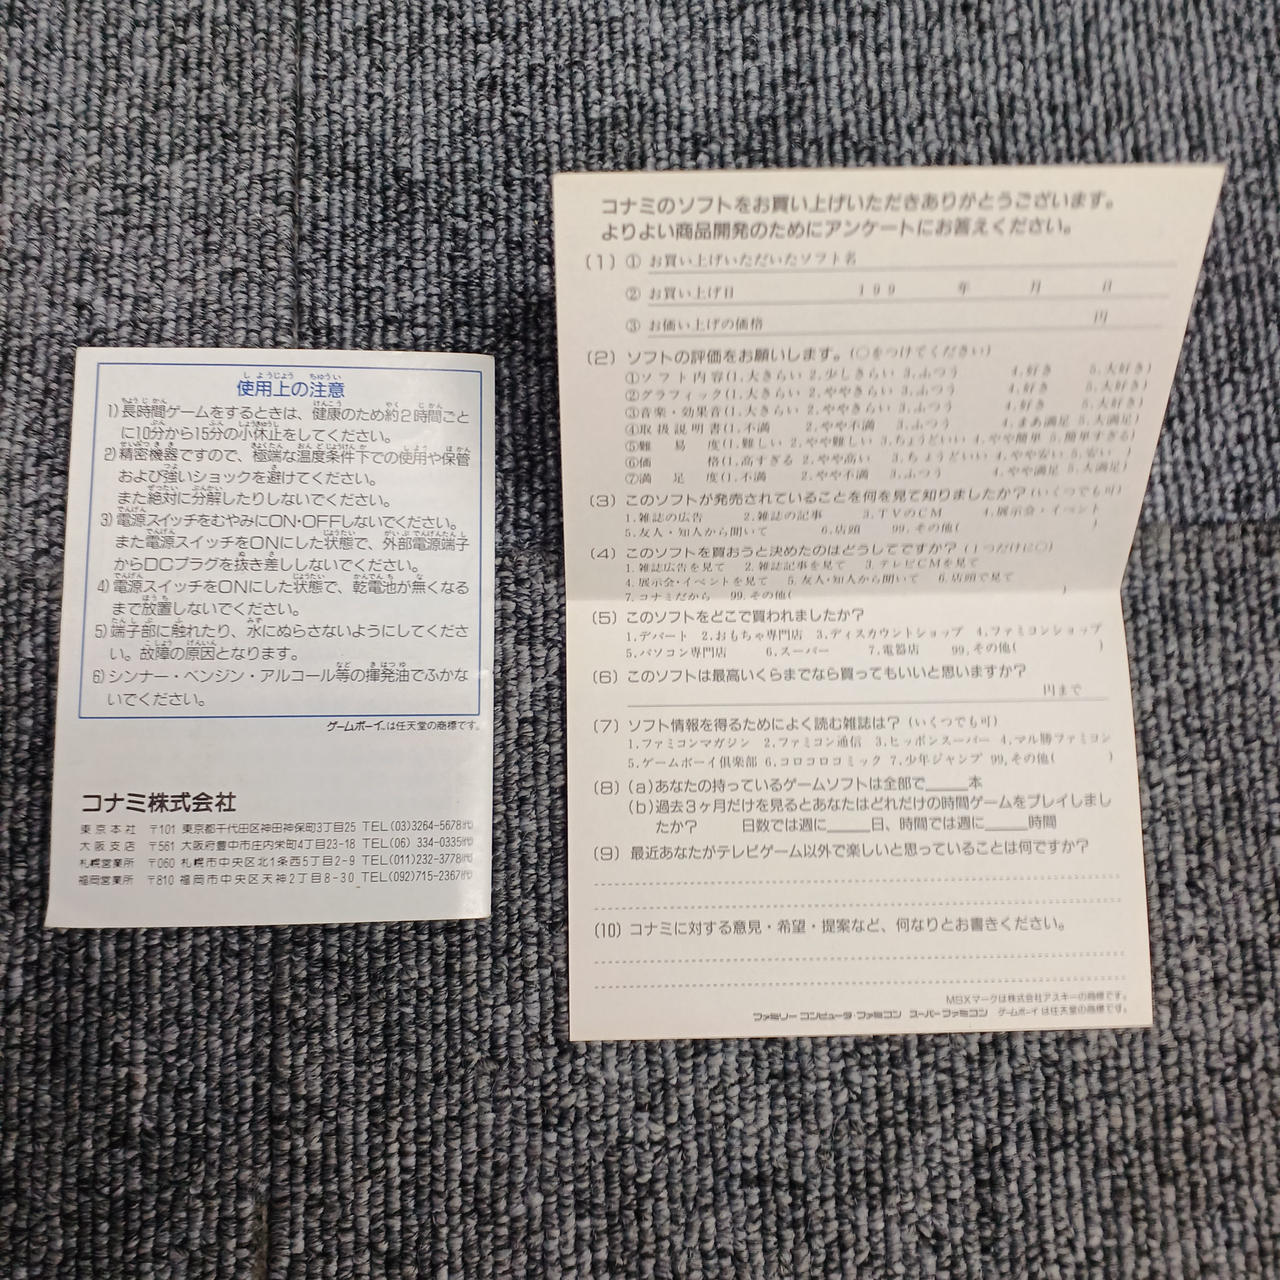 使用上の注意
1)長時間ゲームをするときは、健康のため約2時間ごと
に10分から15分の小休止をしてください。
2)精密機器ですので、極端な温度条件下での使用や保管
および強いショックを避けてください。
また絶対に分解したりしないでください。
3)電源スイッチをむやみにON・OFFしないでください。
また電源スイッチをONにした状態で、外部電源端子
からDCプラグを抜き差ししないでください。
4)電源スイッチをONにした状態で、乾電池が無くなる
まで放置しないでください。
5)端子部に触れたり、水にぬらさないようにしてくださ
い。故障の原因となります。
6)シンナー・ベンジン・アルコール等の揮発油でふかな
いでください。
ゲームボーイ。は任天堂の商標です。
コナミ株式会社
東京本社 〒101 東京都千代田区神田神保町3丁目25 TEL(03)3264-5678㈹
大阪支店 〒561 大阪府豊中市庄内栄町4丁目23-18 TEL(06) 334-0335㈹
札幌営業所 〒060 札幌市中央区北1条西5丁目2-9 TEL(011)232-3778㈹
福岡営業所 〒810 福岡市中央区天神2丁目8-30 TEL(092)715-2367㈹
コナミのソフトをお買い上げいただきありがとうございます。
よりよい商品開発のためにアンケートにお答えください。
(1) ① お買い上げいただいたソフト名
② お買い上げ日 199 年 月 日
③ お価い上げの価格 円
(2) ソフトの評価をお願いします。(○をつけてください)
①ソフト内容(1.大きらい 2.少しきらい 3.ふつう 4.好き 5.大好き)
②グラフィック(1.大きらい 2.ややきらい 3.ふつう 4.好き 5.大好き)
③音楽・効果音(1.大きらい 2.ややきらい 3.ふつう 4.好き 5.大好き)
④取扱説明書(1.不満 2.やや不満 3.ふつう 4.まあ満足 5.大満足)
⑤難易度(1.難しい 2.やや難しい 3.ちょうどいい 4.やや簡単 5.簡単すぎる)
⑥価格(1.高すぎる 2.やや高い 3.ちょうどいい 4.やや安い 5.安い )
⑦満足度(1.不満 2.やや不満 3.ふつう 4.やや満足 5.大満足)
(3) このソフトが発売されていることを何を見て知りましたか?(いくつでも可)
1.雑誌の広告 2.雑誌の記事 3.TVのCM 4.展示会・イベント
5.友人・知人から聞いて 6.店頭 99.その他( )
(4) このソフトを買おうと決めたのはどうしてですか?(1つだけに○)
1.雑誌広告を見て 2.雑誌記事を見て 3.テレビCMを見て
4.展示会・イベントを見て 5.友人・知人から聞いて 6.店頭で見て
7.コナミだから 99.その他( )
(5) このソフトをどこで買われましたか?
1.デパート 2.おもちゃ専門店 3.ディスカウントショップ 4.ファミコンショップ
5.パソコン専門店 6.スーパー 7.電器店 99.その他( )
(6) このソフトは最高いくらまでなら買ってもいいと思いますか?
円まで
(7) ソフト情報を得るためによく読む雑誌は?(いくつでも可)
1.ファミコンマガジン 2.ファミコン通信 3.ヒッポンスーパー 4.マル勝ファミコン
5.ゲームボーイ倶楽部 6.コロコロコミック 7.少年ジャンプ 99.その他( )
(8) (a)あなたの持っているゲームソフトは全部で____本
(b)過去3ヶ月だけを見るとあなたはどれだけの時間ゲームをプレイしまし
たか? 日数では週に____日、時間では週に____時間
(9) 最近あなたがテレビゲーム以外で楽しいと思っていることは何ですか?
(10) コナミに対する意見・希望・提案など、何なりとお書きください。
MSXマークは株式会社アスキーの商標です。
ファミリーコンピュータ・ファミコン スーパーファミコン ゲームボーイ は任天堂の商標です。